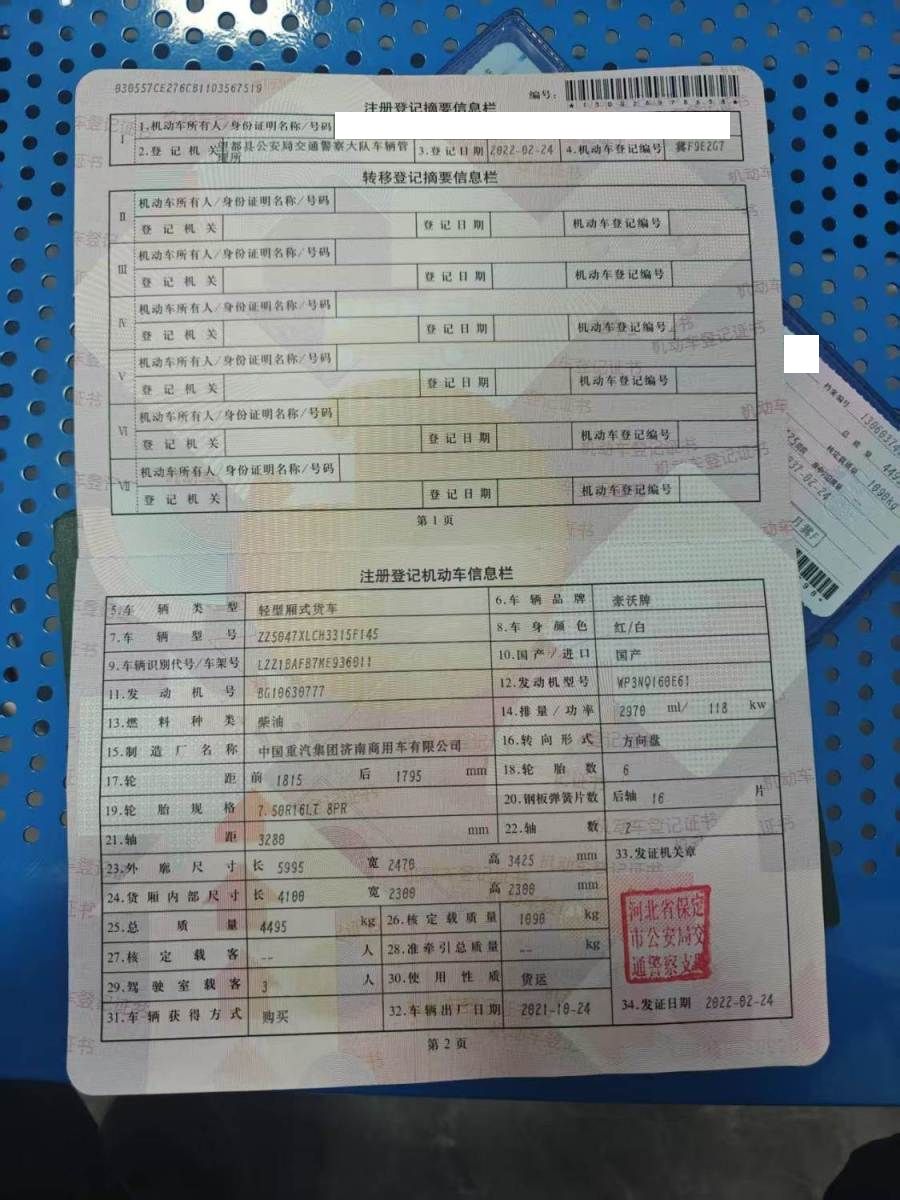 B30557CE276CB1103567519
编号：
注册登记摘要信息栏
I 1.机动车所有人/身份证明名称/号码
2.登记机关 望都县公安局交通警察大队车辆管理所 3.登记日期 2022-02-24 4.机动车登记编号 冀F9E2G7
转移登记摘要信息栏
II 机动车所有人/身份证明名称/号码
登记机关 登记日期 机动车登记编号
III 机动车所有人/身份证明名称/号码
登记机关 登记日期 机动车登记编号
IV 机动车所有人/身份证明名称/号码
登记机关 登记日期 机动车登记编号
V 机动车所有人/身份证明名称/号码
登记机关 登记日期 机动车登记编号
VI 机动车所有人/身份证明名称/号码
登记机关 登记日期 机动车登记编号
VII 机动车所有人/身份证明名称/号码
登记机关 登记日期 机动车登记编号
第1页
注册登记机动车信息栏
5.车辆类型 轻型厢式货车 6.车辆品牌 豪沃牌
7.车辆型号 ZZ5047XLCH3315F145 8.车身颜色 红/白
9.车辆识别代号/车架号 LZZ1BAFB7ME936011 10.国产/进口 国产
11.发动机号 BG10630777 12.发动机型号 WP3NQ160E61
13.燃料种类 柴油 14.排量/功率 2970 ml/ 118 kw
15.制造厂名称 中国重汽集团济南商用车有限公司 16.转向形式 方向盘
17.轮距 前 1815 后 1795 mm 18.轮胎数 6
19.轮胎规格 7.50R16LT 8PR 20.钢板弹簧片数 后轴 16 片
21.轴距 3280 mm 22.轴数 2
23.外廓尺寸 长 5995 宽 2470 高 3425 mm 33.发证机关章
24.货厢内部尺寸 长 4100 宽 2300 高 2300 mm
25.总质量 4495 kg 26.核定载质量 1090 kg
27.核定载客 -- 人 28.准牵引总质量 -- kg
29.驾驶室载客 3 人 30.使用性质 货运
31.车辆获得方式 购买 32.车辆出厂日期 2021-10-24 34.发证日期 2022-02-24
河北省保定
市公安局交
通警察支队
第2页
档案编号
总质量
核定载质量
1090kg